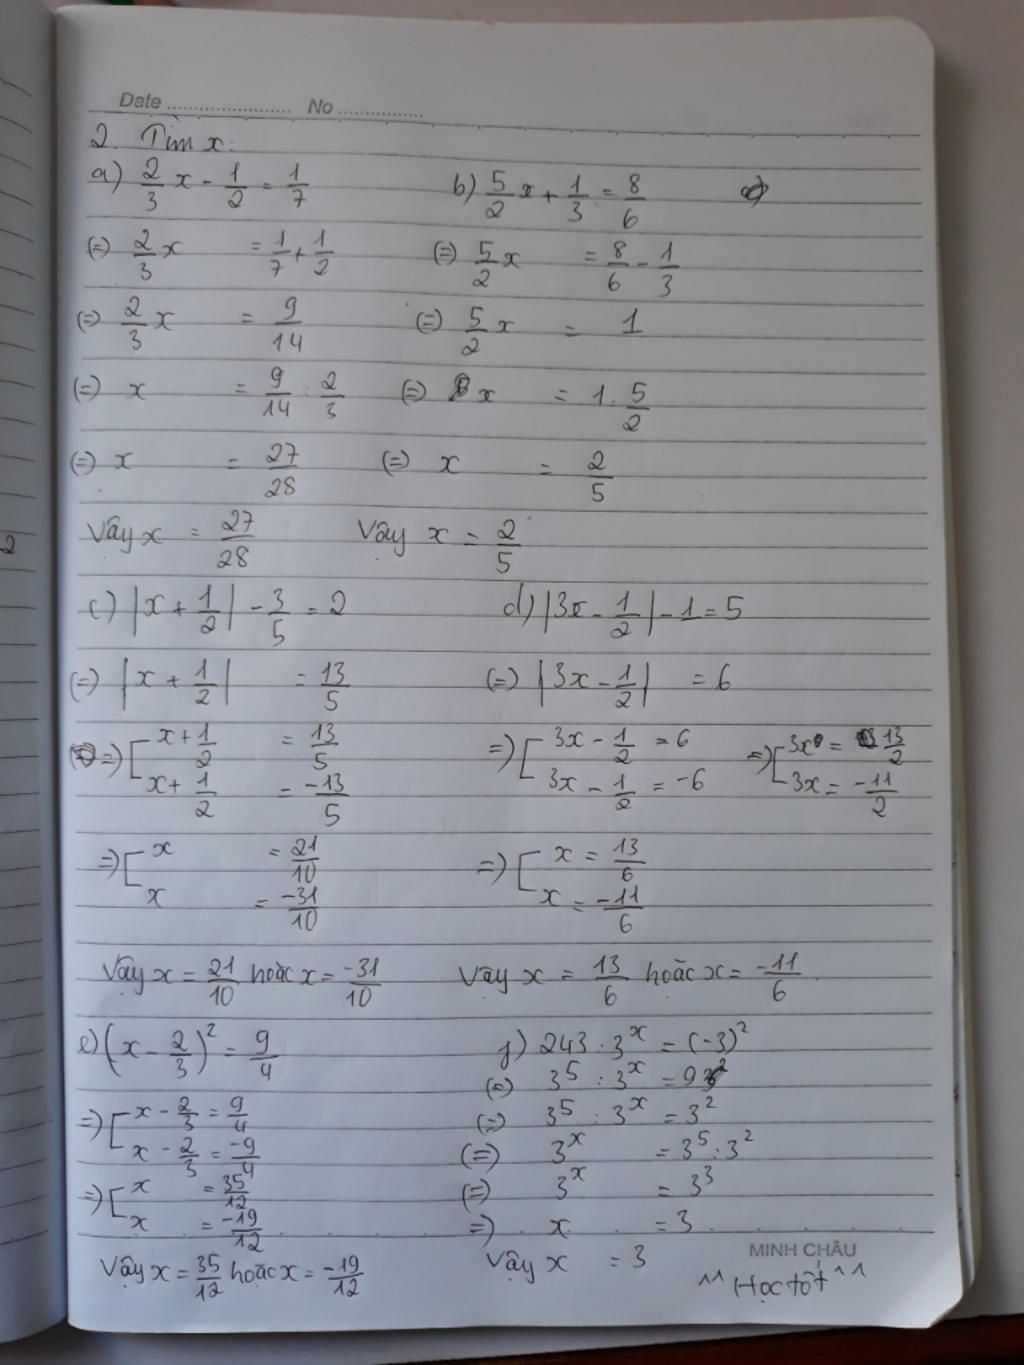 Date ........................ No ................
2. Tìm x:
a) 2/3 x - 1/2 = 1/7
(=) 2/3 x = 1/7 + 1/2
(=) 2/3 x = 9/14
(=) x = 9/14 : 2/3
(=) x = 27/28
Vậy x = 27/28
b) 5/2 x + 1/3 = 8/6
(=) 5/2 x = 8/6 - 1/3
(=) 5/2 x = 1
(=) x = 1 . 5/2
(=) x = 2/5
Vậy x = 2/5
c) |x + 1/2| - 3/5 = 2
(=) |x + 1/2| = 13/5
=) [ x + 1/2 = 13/5
x + 1/2 = -13/5
=) [ x = 21/10
x = -31/10
Vậy x = 21/10 hoặc x = -31/10
d) |3x - 1/2| - 1 = 5
(=) |3x - 1/2| = 6
=) [ 3x - 1/2 = 6
3x - 1/2 = -6
=) [ 3x = 13/2
3x = -11/2
=) [ x = 13/6
x = -11/6
Vậy x = 13/6 hoặc x = -11/6
e) (x - 2/3)² = 9/4
=) [ x - 2/3 = 9/4
x - 2/3 = -9/4
=) [ x = 35/12
x = -19/12
Vậy x = 35/12 hoặc x = -19/12
f) 243 : 3ˣ = (-3)²
(=) 3⁵ : 3ˣ = 9
(=) 3⁵ : 3ˣ = 3²
(=) 3ˣ = 3⁵ : 3²
(=) 3ˣ = 3³
=) x = 3
Vậy x = 3
MINH CHÂU
^^ Học tốt ^^
2